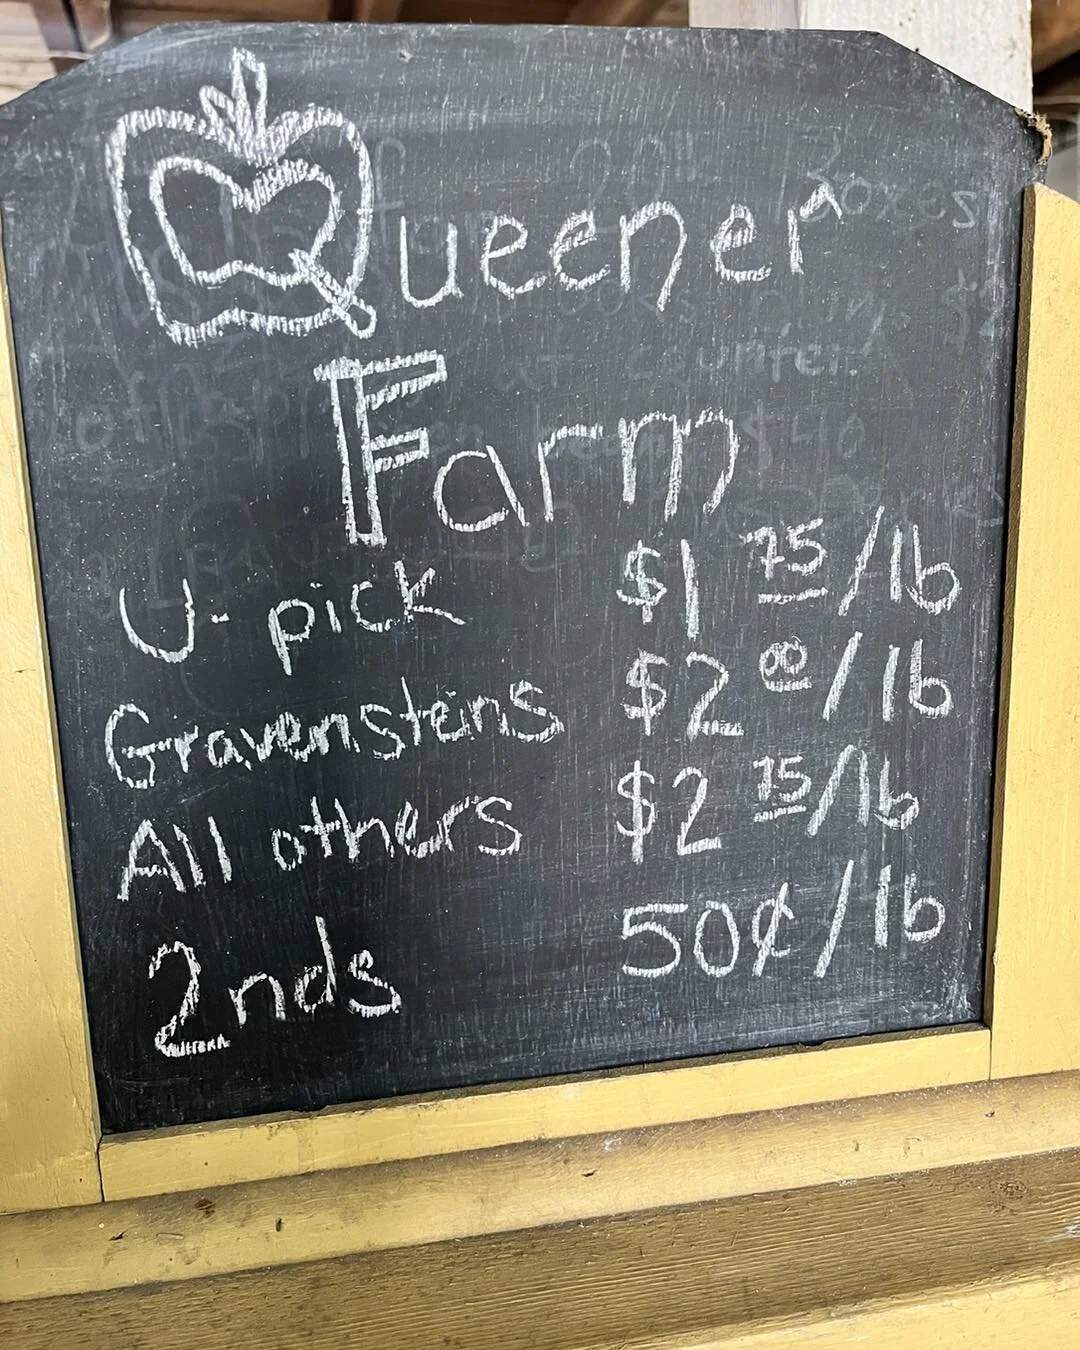 Queener
Farm
U-pick $1 75/lb
Gravensteins $2 00/lb
All others $2 75/lb
2nds 50¢/lb